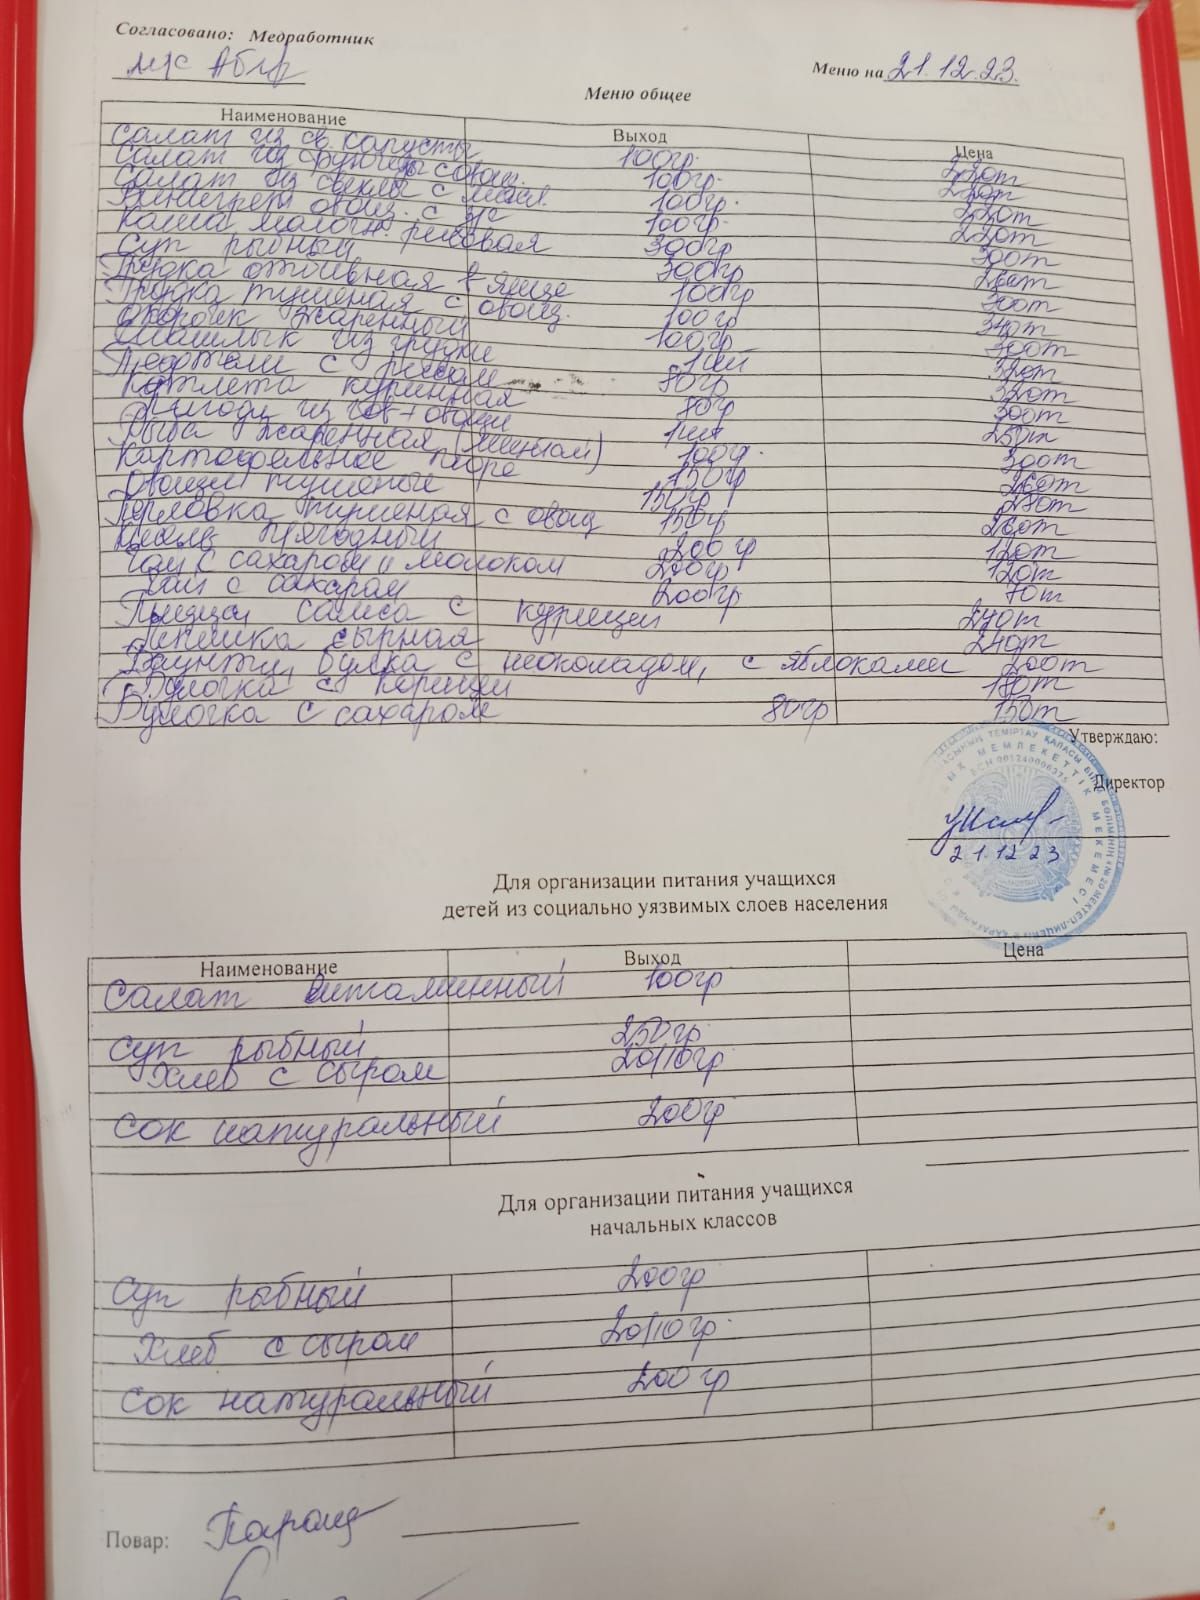 Согласовано: Медработник
м/с
Меню на 21.12.23.
Меню общее
Наименование Выход Цена
Салат из св. капусты 100гр.
Салат из фунчозы с овощ. 100гр.
Салат из свеклы с масл. 100гр.
Винегрет овощ. с 100гр.
Каша молочн. рисовая 300гр 300т
Суп рыбный 300гр 260т
Грудка отбивная в яйце 100гр 300т
Грудка тушеная с овощ. 100гр 340т
Окорочек жаренный 100гр 300т
Шашлык из грудки 1шт 320т
Тефтели с рисом 80гр 320т
Котлета куринная 80гр 300т
из гов + овощи 1шт 250т
Рыба жаренная (минтай) 100гр. 300т
Картофельное пюре 150гр
Овощи тушеные 150гр
Перловка тушеная с овощ 150гр 260т
Кисель ягодный 200гр 120т
Чай с сахаром и молоком 200гр 120т
Чай с сахаром 200гр 70т
Пицца, самса с курицей 240т
Лепешка сырная 240т
Баунти, булка с шоколадом, с яблоками 200т
Булочка с корицей 180т
Булочка с сахаром 80гр 150т
Утверждаю:
Директор
21.12 23
Для организации питания учащихся
детей из социально уязвимых слоев населения
Наименование Выход Цена
Салат витаминный 100гр
Суп рыбный 250гр
Хлеб с сыром 20/10гр
Сок натуральный 200гр
Для организации питания учащихся
начальных классов
Суп рыбный 200гр
Хлеб с сыром 20/10гр.
Сок натуральный 200гр
Повар: